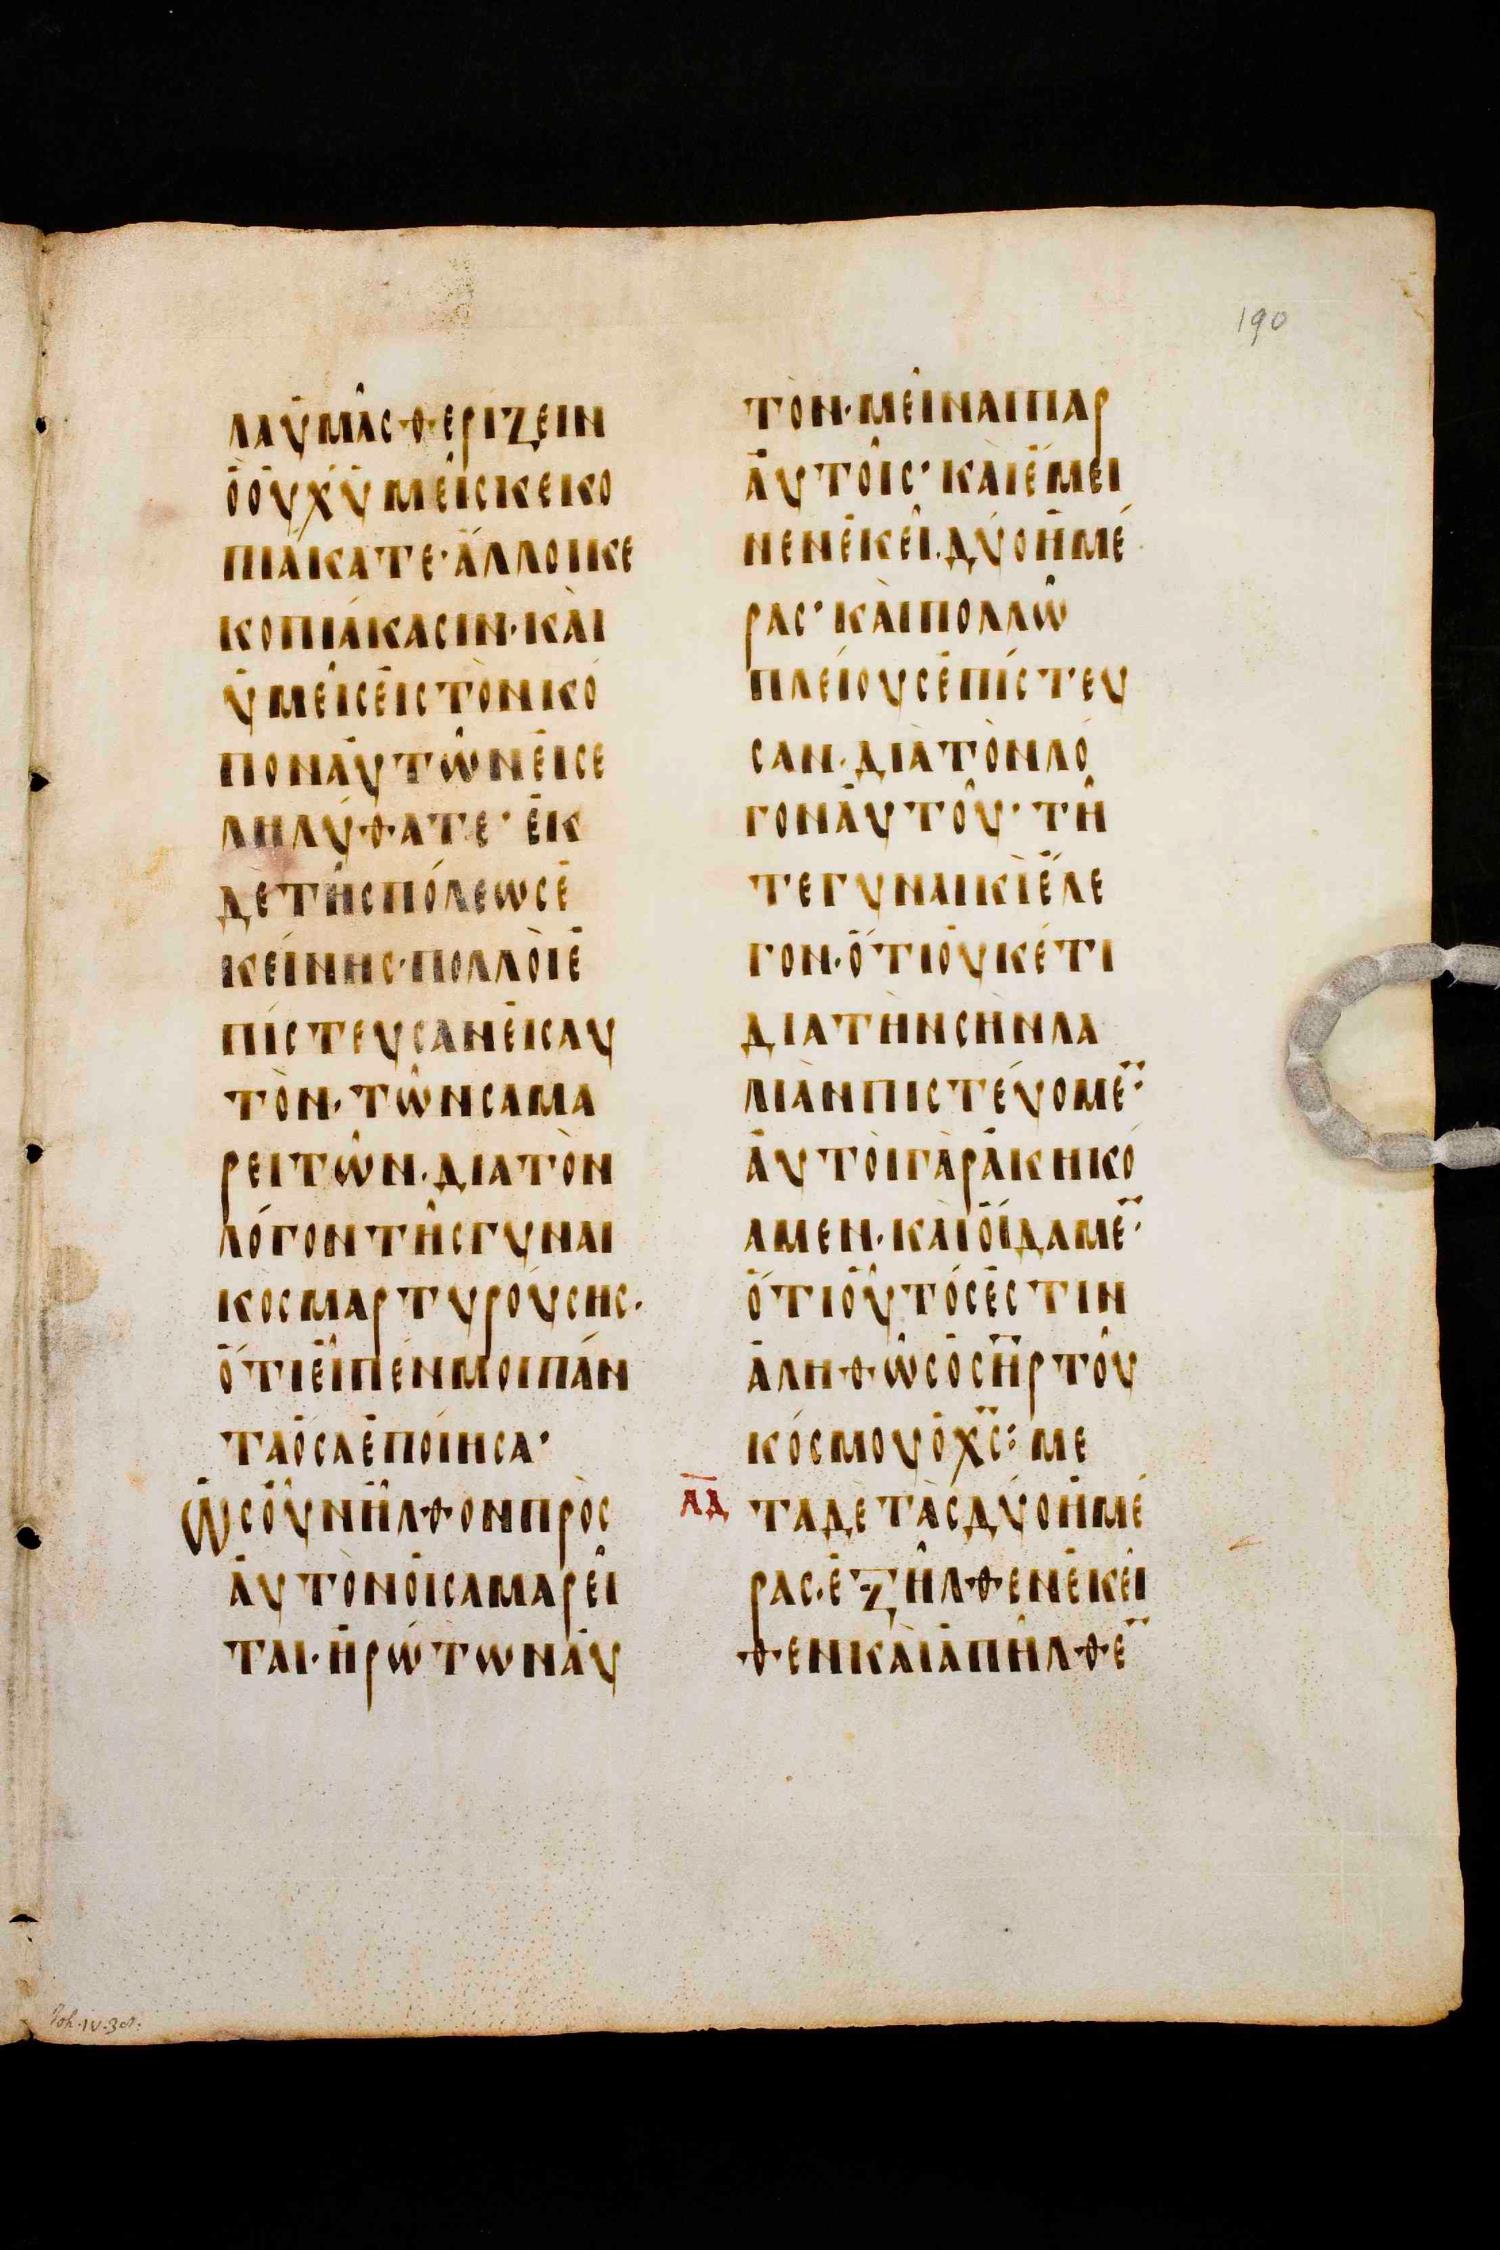 190
ΛΑΥ̓ΜᾶCΘΕΡΊΖΕΙΝ
ὍΟΥ̓ΧΫΜΕῖCΚΕΚΟ
ΠΙΆΚΑΤΕ· ἌΛΛΟΙΚΕ
ΚΟΠΙΆΚΑCΙΝ· ΚΑῚ
ΫΜΕῖCΕἸCΤῸΝΚΌ
ΠΟΝΑΥ̓ΤῶΝΕἸCΕ
ΛΗΛΎΘΑΤΕ· ἘΚ
ΔῈΤῆCΠΌΛΕΩCἘ
ΚΕΊΝΗC· ΠΟΛΛΟῚἘ
ΠΊCΤΕΥCΑΝΕἸCΑΥ
ΤῸΝ· ΤῶΝCΑΜΑ
ΡΕΙΤῶΝ· ΔΙΑΤῸΝ
ΛΌΓΟΝΤῆCΓΥΝΑΙ
ΚῸCΜΑΡΤΥΡΟΎCΗC·
ὍΤΙΕἾΠΈΝΜΟΙΠΆΝ
ΤΑὍCΑἘΠΟΊΗCΑ·
ὩCΟὖΝἦΛΘΟΝΠΡῸC
ΑΥ̓ΤῸΝΟἹCΑΜΑΡΕῖ
ΤΑΙ· ἨΡΏΤΩΝΑΥ̓
ΤῸΝ· ΜΕῖΝΑΙΠΑΡ
ΑΥ̓ΤΟῖC· ΚΑῚἜΜΕΙ
ΝΕΝἘΚΕῖ· ΔΎΟἩΜΈ
ΡΑC· ΚΑῚΠΟΛΛῶ
ΠΛΕΊΟΥCἘΠΊCΤΕΥ
CΑΝ· ΔΙᾺΤῸΝΛΌ
ΓΟΝΑΥ̓ΤΟῦ· Τῆ
ΤΕΓΥΝΑΙΚῚἜΛΕ
ΓΟΝ· ὍΤΙΟΥ̓ΚΈΤΙ
ΔΙΑΤῊΝCῊΝΛΑ
ΛΙᾺΝΠΙCΤΕΎΟΜΕ̄·
ΑΥ̓ΤΟῚΓᾺΡἈΚΗΚΌ
ΑΜΕΝ· ΚΑῚΟἼΔΑΜΕ̄·
ὍΤΙΟὟΤΌCἘCΤΙΝ
ἈΛΗΘῶCὉC̄Η̄ΡΤΟῦ
ΚΌCΜΟΥὉΧ̄C̄: ΜΕ
Λ̄Δ̄ ΤΑΔῈΤᾺCΔΎΟἩΜΈ
ΡΑC· ἘΞῆΛΘΕΝἘΚΕῖ
ΘΕΝΚΑῚἈΠῆΛΘΕ̄
Joh. IV. 38.